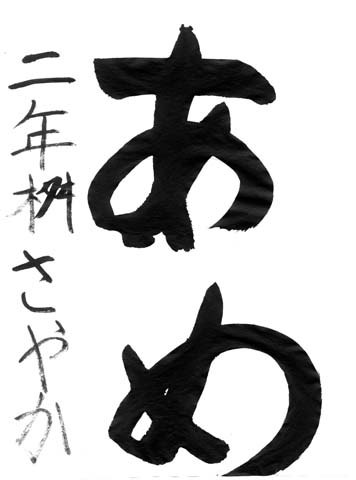 あめ
二年桝さやか